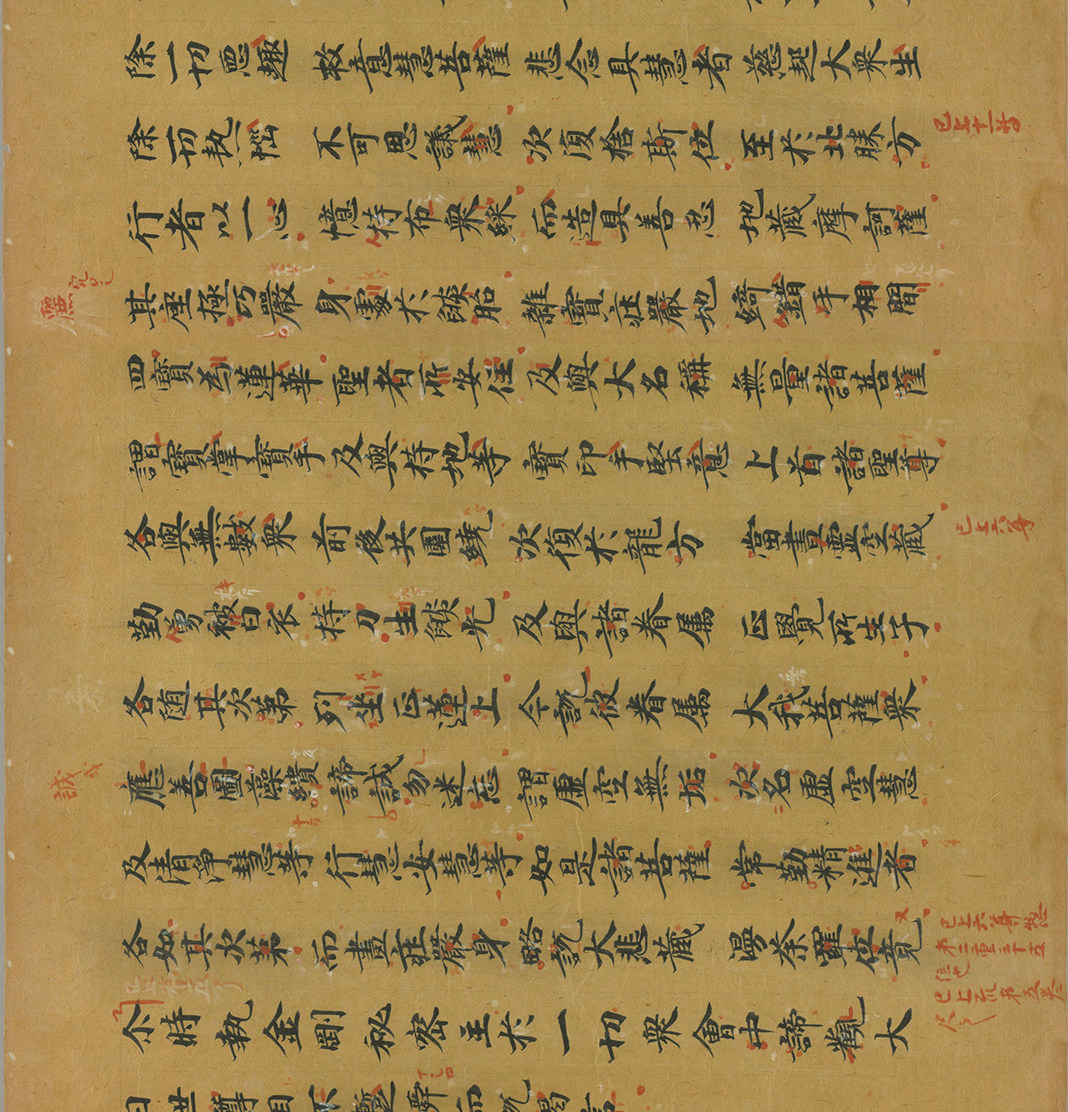 除一切惡趣 救意慧菩薩 悲念具慧者 慈起大衆生
除一切熱惱 不可思議慧 次復捨斯位 至於北勝方
已上十一尊
行者以一心 憶持布衆綵 而造具善忍 地藏摩訶薩
其座極巧嚴 身處於餤胎 雜寶莊嚴地 綺錯乎相間
四寶為蓮華 聖者所安住 及與大名稱 無量諸菩薩
謂寶掌寶手 及與持地等 寶印手堅意 上首諸聖尊
各與無數衆 前後共圍繞 次復於龍方 當畫虛空藏
已上六尊
勤勇被白衣 持刀生餤光 及與諸眷屬 正覺所生子
各隨其次第 列坐正蓮上 今說彼眷屬 大我菩薩衆
應善圖藻繢 諦誠勿迷忘 謂虛空無垢 次名虛空慧
誠
及清淨慧等 行慧安慧等 如是諸菩薩 常勤精進者
各如其次第 而畫莊嚴身 略說大悲藏 曼荼羅位竟
尒時執金剛祕密主於一切衆會中諦觀大
日世尊目不暫瞬而說偈言